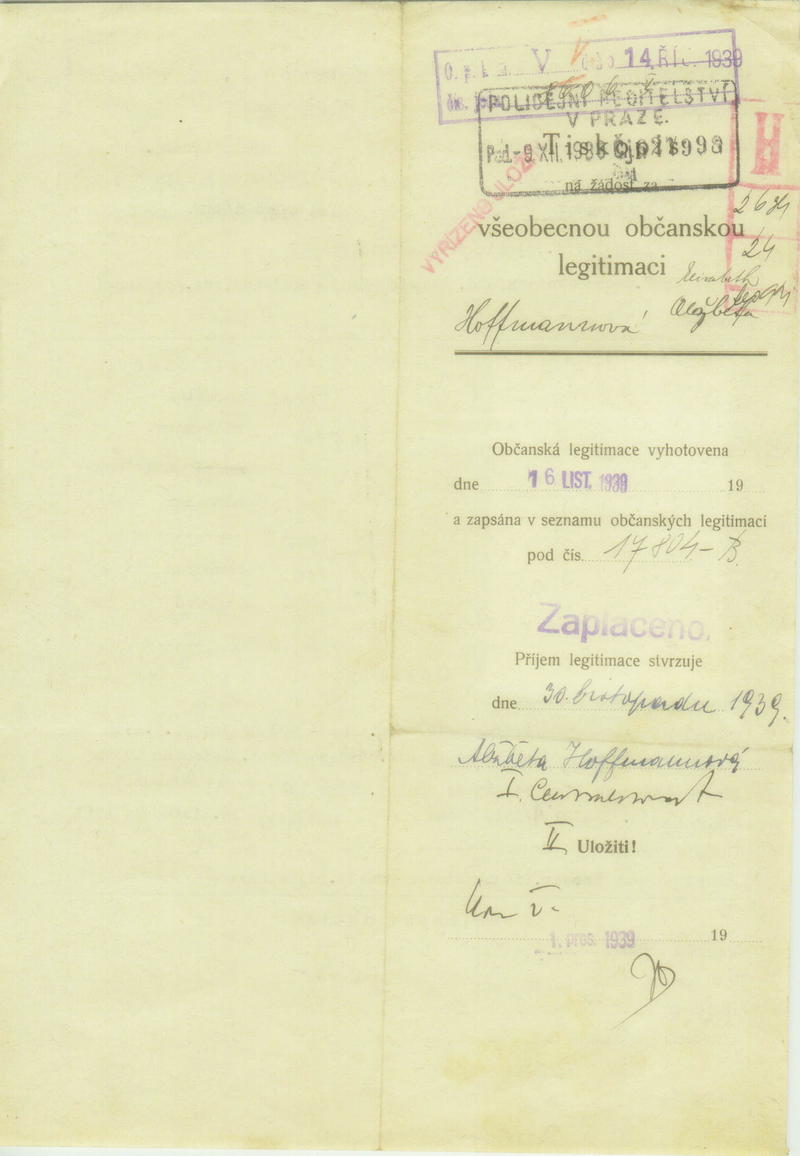 V 14. ŘÍJ. 1939
POLICEJNÍ ŘEDITELSTVÍ
V PRAZE.
Tiskopis
H
na žádost za
VYŘÍZENO ULOŽ
všeobecnou občanskou
24
legitimaci
Elisabeth
Hoffmannová Alžběta
Občanská legitimace vyhotovena
dne 16 LIST. 1939 19
a zapsána v seznamu občanských legitimací
pod čís. 17804-B.
Zaplaceno.
Příjem legitimace stvrzuje
dne 30. listopadu 1939.
Alžběta Hoffmannová
I.
II Uložiti!
1. pros. 1939 19